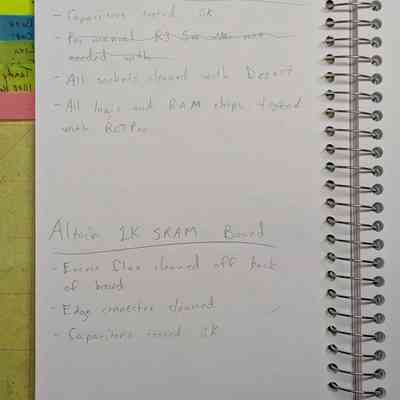 - Capacitors tested OK
- Per manual R3 5
needed with
- All sockets cleaned with Deoxit
- All logic and RAM chips tested
with RCT Pro
Altach 2K SRAM Board
- Excess flux cleaned off back
of board
- Edge connector cleaned
- Capacitors tested OK